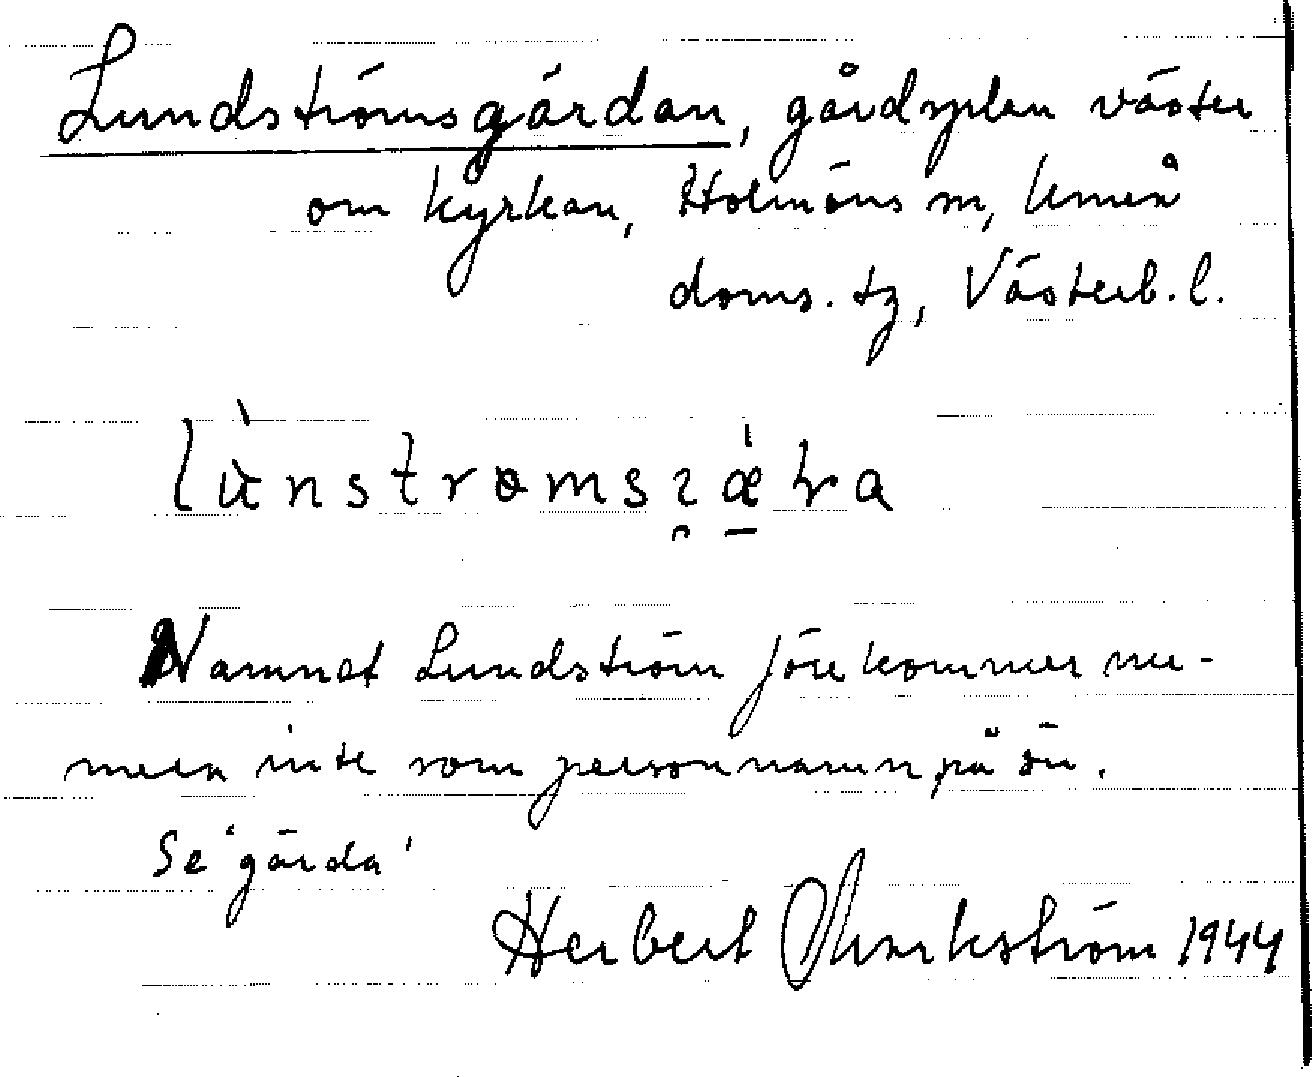 Lundströmsgärdan, gårdsplan väster
om kyrkan, Holmöns sn, Umeå
doms. tg, Västerb. l.
lùnstrømsɀǽra
Namnet Lundström förekommer nu-
mera inte som personnamn på ön.
Se 'gärda'
Herbert Markström 1944